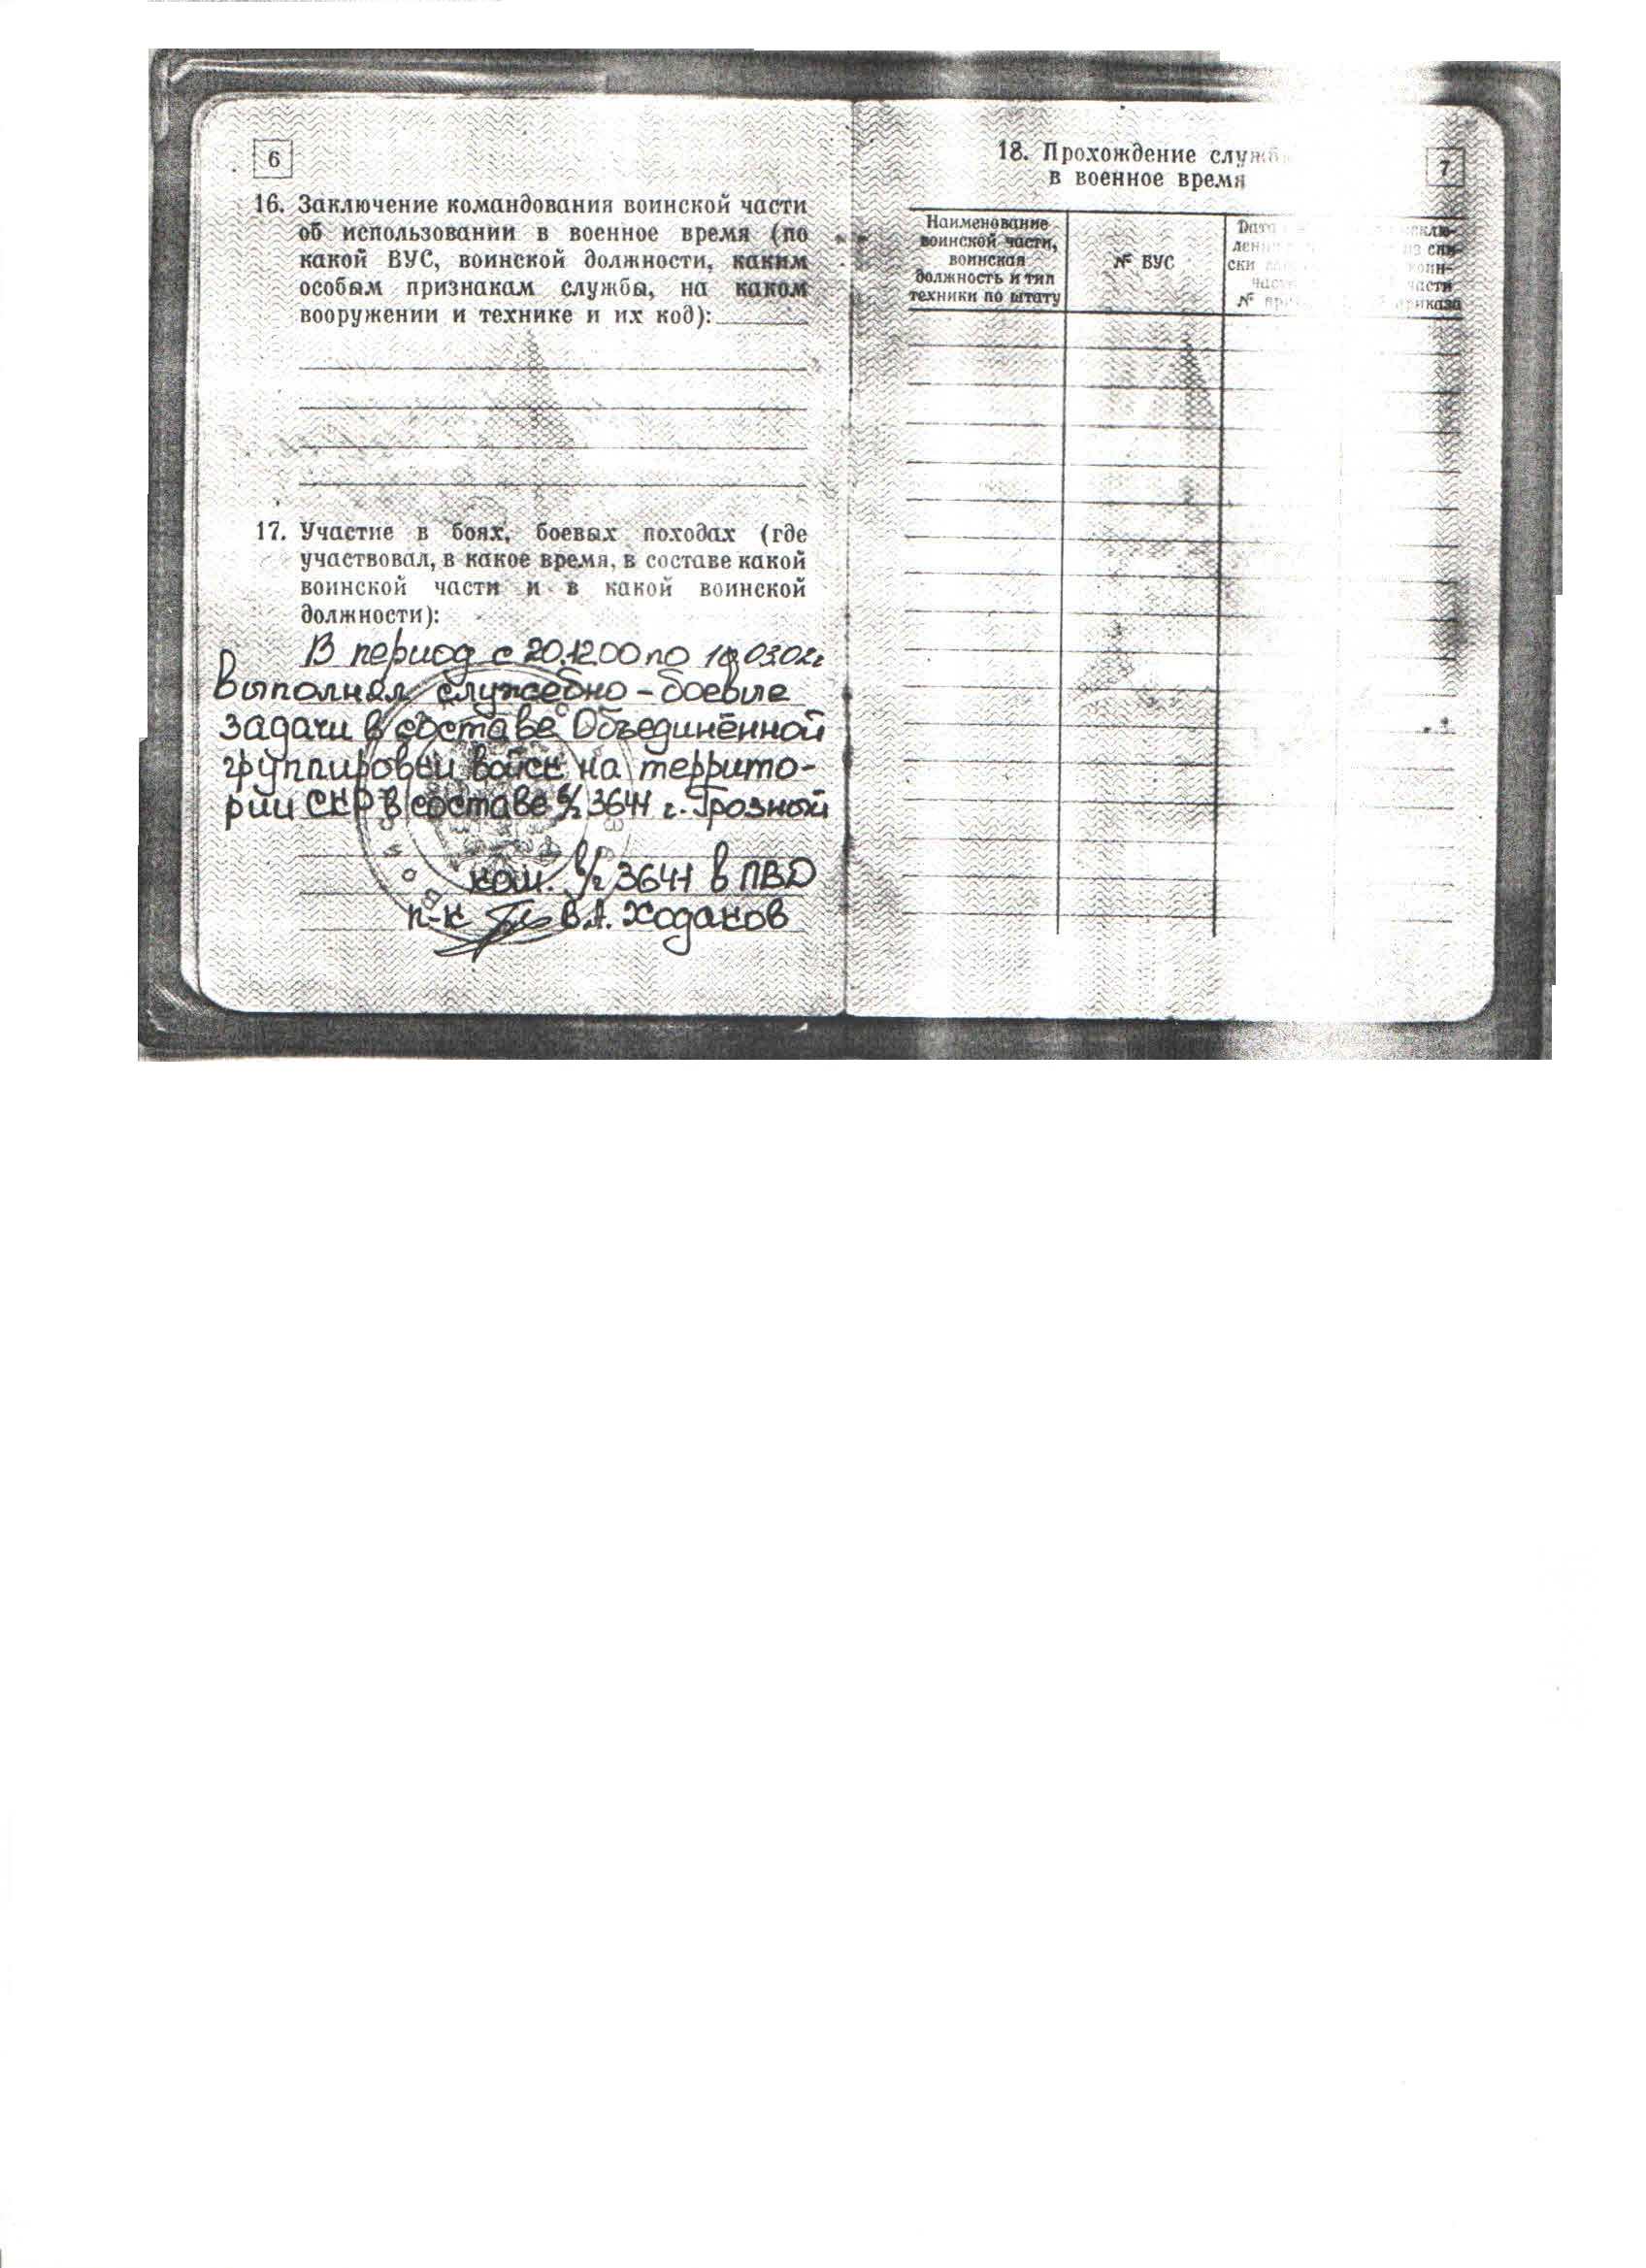 6
16. Заключение командования воинской части
об использовании в военное время (по
какой ВУС, воинской должности, каким
особым признакам службы, на каком
вооружении и технике и их код):
17. Участие в боях, боевых походах (где
участвовал, в какое время, в составе какой
воинской части и в какой воинской
должности):
В период с 20.12.00 по
выполнял служебно-боевые
задачи в составе Объединённой
группировки войск на террито-
рии СКР в составе в/ч 3641 г. Грозный
ком. в/ч 3641 в ПВД
п-к В.А. Ходаков
7
18. Прохождение служб
в военное время
Наименование
воинской части,
воинская
должность и тип
техники по штату
№ ВУС
Дата
лени
ски
час
№ при
исклю-
из спи-
воин-
части
приказа